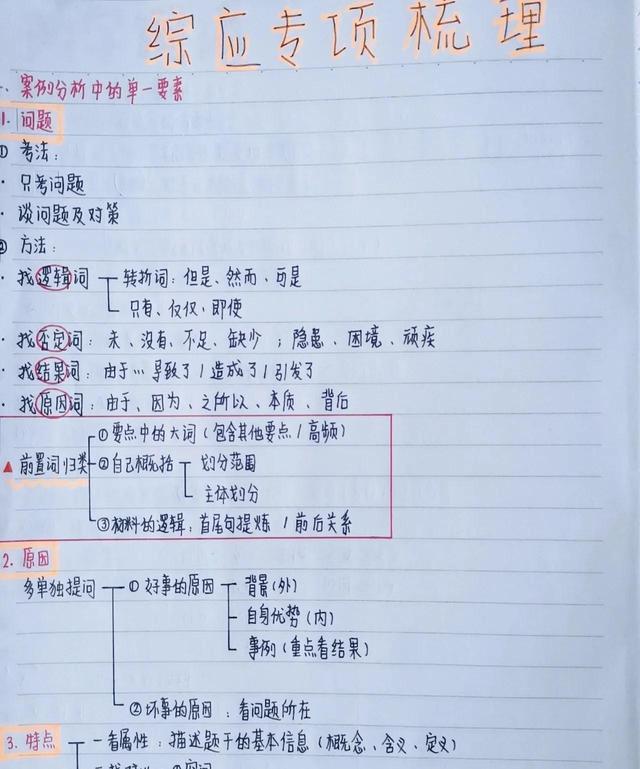 综应专项梳理
一、案例分析中的单一要素
1. 问题
① 考法：
· 只考问题
· 谈问题及对策
② 方法：
· 找逻辑词 转折词：但是、然而、可是
只有、仅仅、即使
· 找否定词：未、没有、不足、缺少；隐患、困境、顽疾
· 找结果词：由于…导致了/造成了/引发了
· 找原因词：由于、因为、之所以、本质、背后
① 要点中的大词（包含其他要点/高频）
▲ 前置词归类 ② 自己概括 划分范围
主体划分
③ 材料的逻辑：首尾句提炼/前后关系
2. 原因
多单独提问 ① 好事的原因 背景（外）
自身优势（内）
事例（重点看结果）
② 坏事的原因：看问题所在
3. 特点 一看属性：描述题干的基本信息（概念、含义、定义）